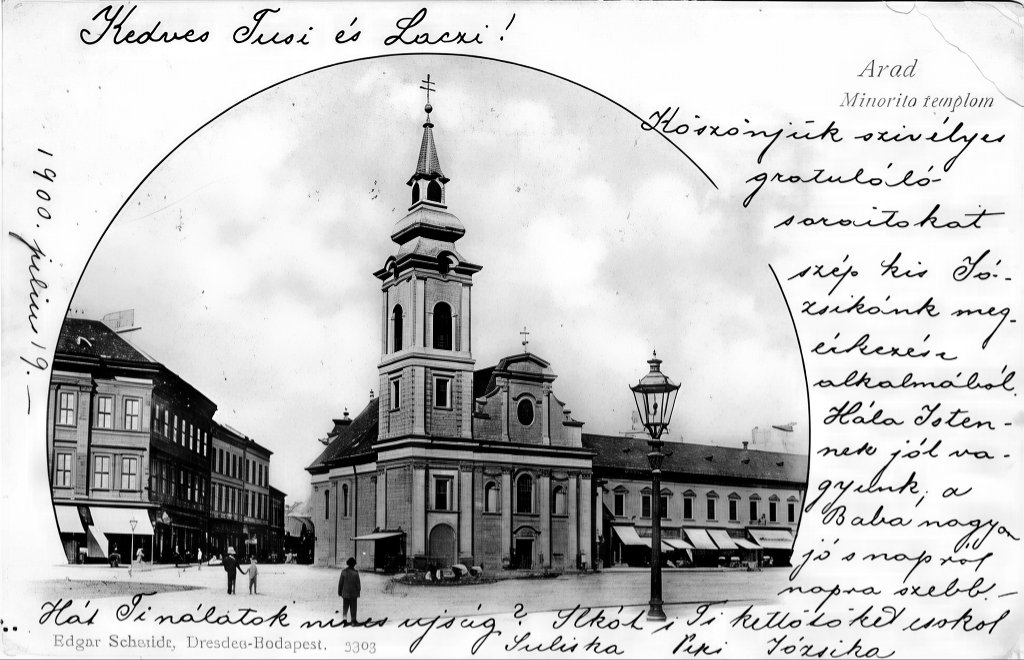 Kedves Tusi és Laczi!
Arad
Minorita templom
Köszönjük szivélyes
gratuláló
soraitokat
szép kis Jó-
zsikánk meg-
érkezése
alkalmából.
Hála Isten-
nek jól va-
gyunk, a
Baba nagyon
jó s napról
napra szebb. —
1900. julius 19. —
Hát Tinálatok nincs ujság?
Ti kettőtöket csokol
Juliska Pepi Józsika
Edgar Schmidt, Dresden-Budapest. 3303